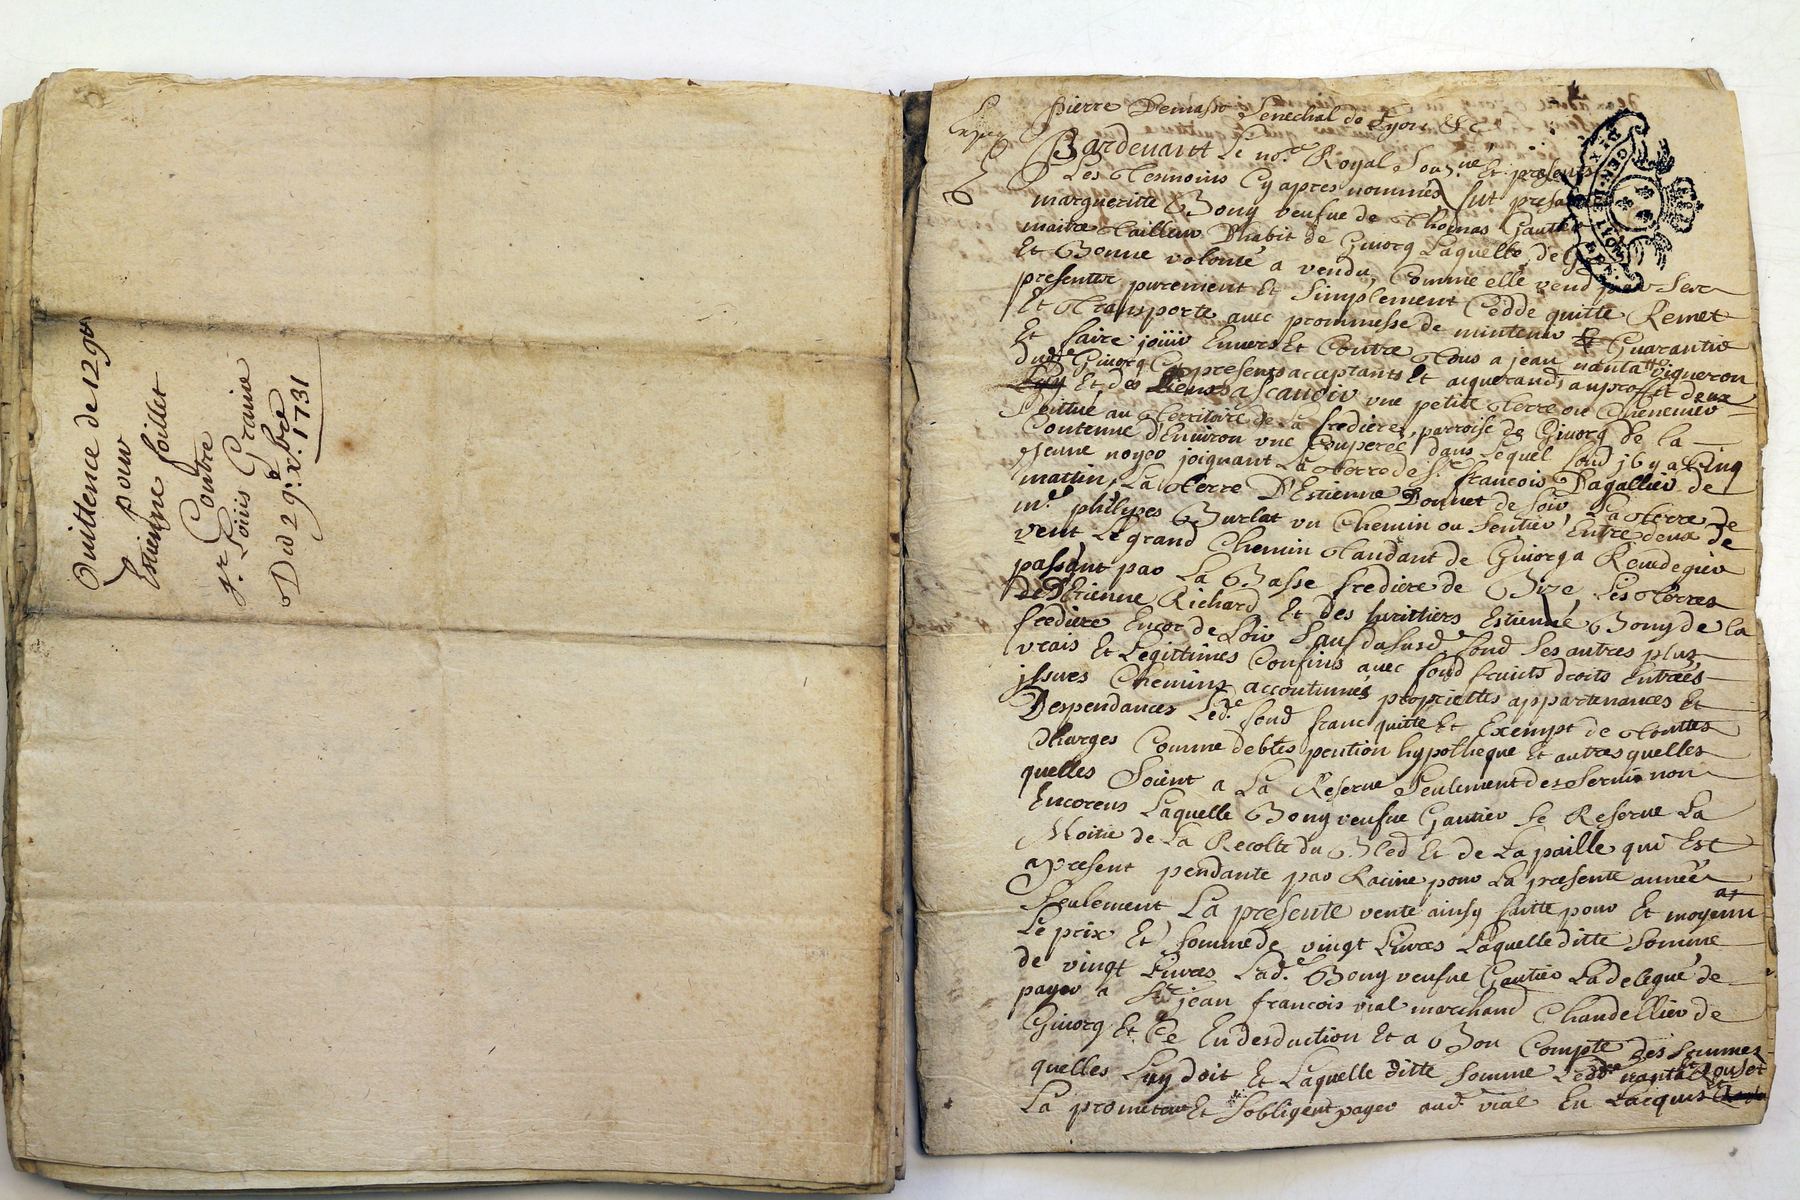 Quittence de 129 ₶
pour
Estienne foillet
Contre
Sr. Loüis Graine
Du 29e. xbre
1731
Expé
pierre Demasso Senechal de Lyon &c
Pardevant Le nore. Royal Souz.né Et presents
Les tesmoins Cy apres nommés fut presante
margueritte Bony veufue de thomas Gautier
maitre tailleur Dhabit de Giuorq Laquelle de Gré
Et Bonne volonté a vendu Comme elle vend par Ses
presentes purement Et Simplement Cedde quitte Remet
Et transporte avec prommesse de mintenir Et Guarantir
Et faire joüir Enuers Et Contre tous a jean nanta vigneron
dudt Giuorq Cy presents acceptants Et aiquerands au proffit deux
Et des Liens a Scauoir vne petite terre ou Chenevier
Scitué au territoire de la fredierre parroise de Giuorq de la
Contenue d'Enuiron vne Couperée dans Lequel fond il y a Cinq
jeune noyer joignant La terre de Sr. francois Dagallier de
mattin, La terre D'Estienne Donnet de Soir La terre de
mr. philipes Burlat vn Chemin ou Sentier Entre deux de
vent Le grand Chemin tandant de Giuorq a Rendegier
passant par La Basse frediere de Bize, Les terres
de Etienne Richard Et des heritiers Estienne Bony de la
frediere Encor de Soir Sauf dususd. fond Ses autres plus
vrais Et Legittimes Confins avec fond fruits droits Entrées
jssues Chemins accoutumés propriettes appartenances Et
Despendances Led.t fond franc quitte Et Exempt de touttes
Charges Comme debtes pention hypotheque Et autres quelles
quelles Soient a La Reserve Seulement des Seruis non
Encorus Laquelle Bony veufue Gautier Se Reserve La
Moitié de La Recolte du Bled Et de La paille qui Est
a present pendante par Racine pour La presente année
Seulement La presente vente ainsy faitte pour Et moyenn
Le prix Et Somme de vingt Livres Laquelle ditte Somme
de vingt Livres Lad.e Bony veufue Gautier La delegué de
payer a Sr. jean francois vial marchand Chandellier de
Giuorq Et Ce En desduction Et a Bon Compte des Sommes
quelles Luy doit Et Laquelle ditte Somme Ledt. nanta Et
La promettent Et Sobligent payer aud. vial En Lacquis